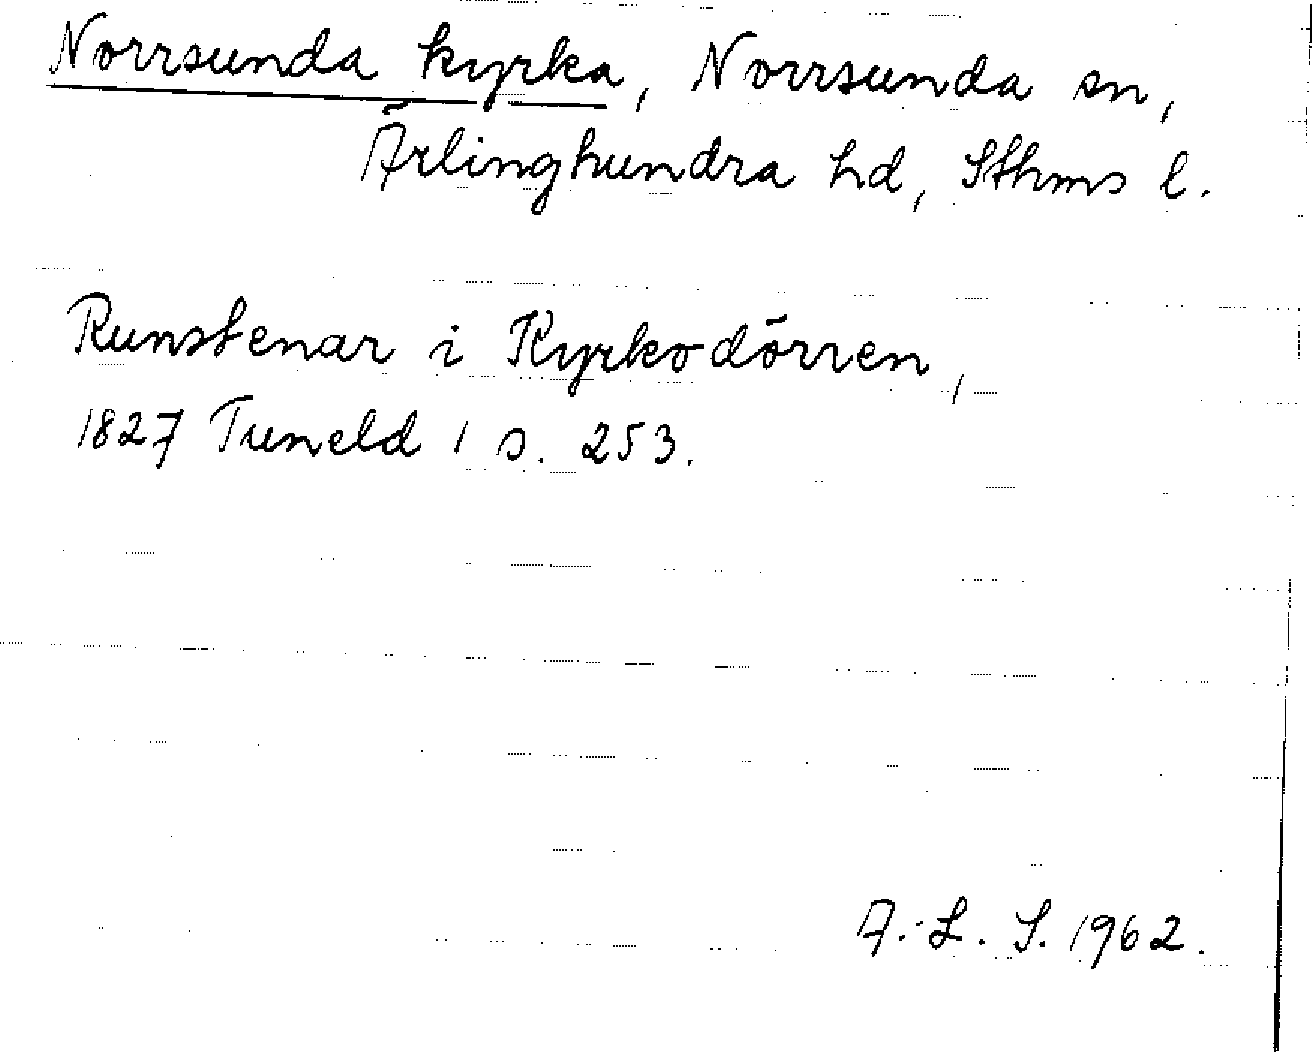 Norrsunda kyrka, Norrsunda sn,
Ärlinghundra hd, Sthms l.
Runstenar i Kyrkodörren,
1827 Tuneld 1 s. 253.
A.-L. S. 1962.